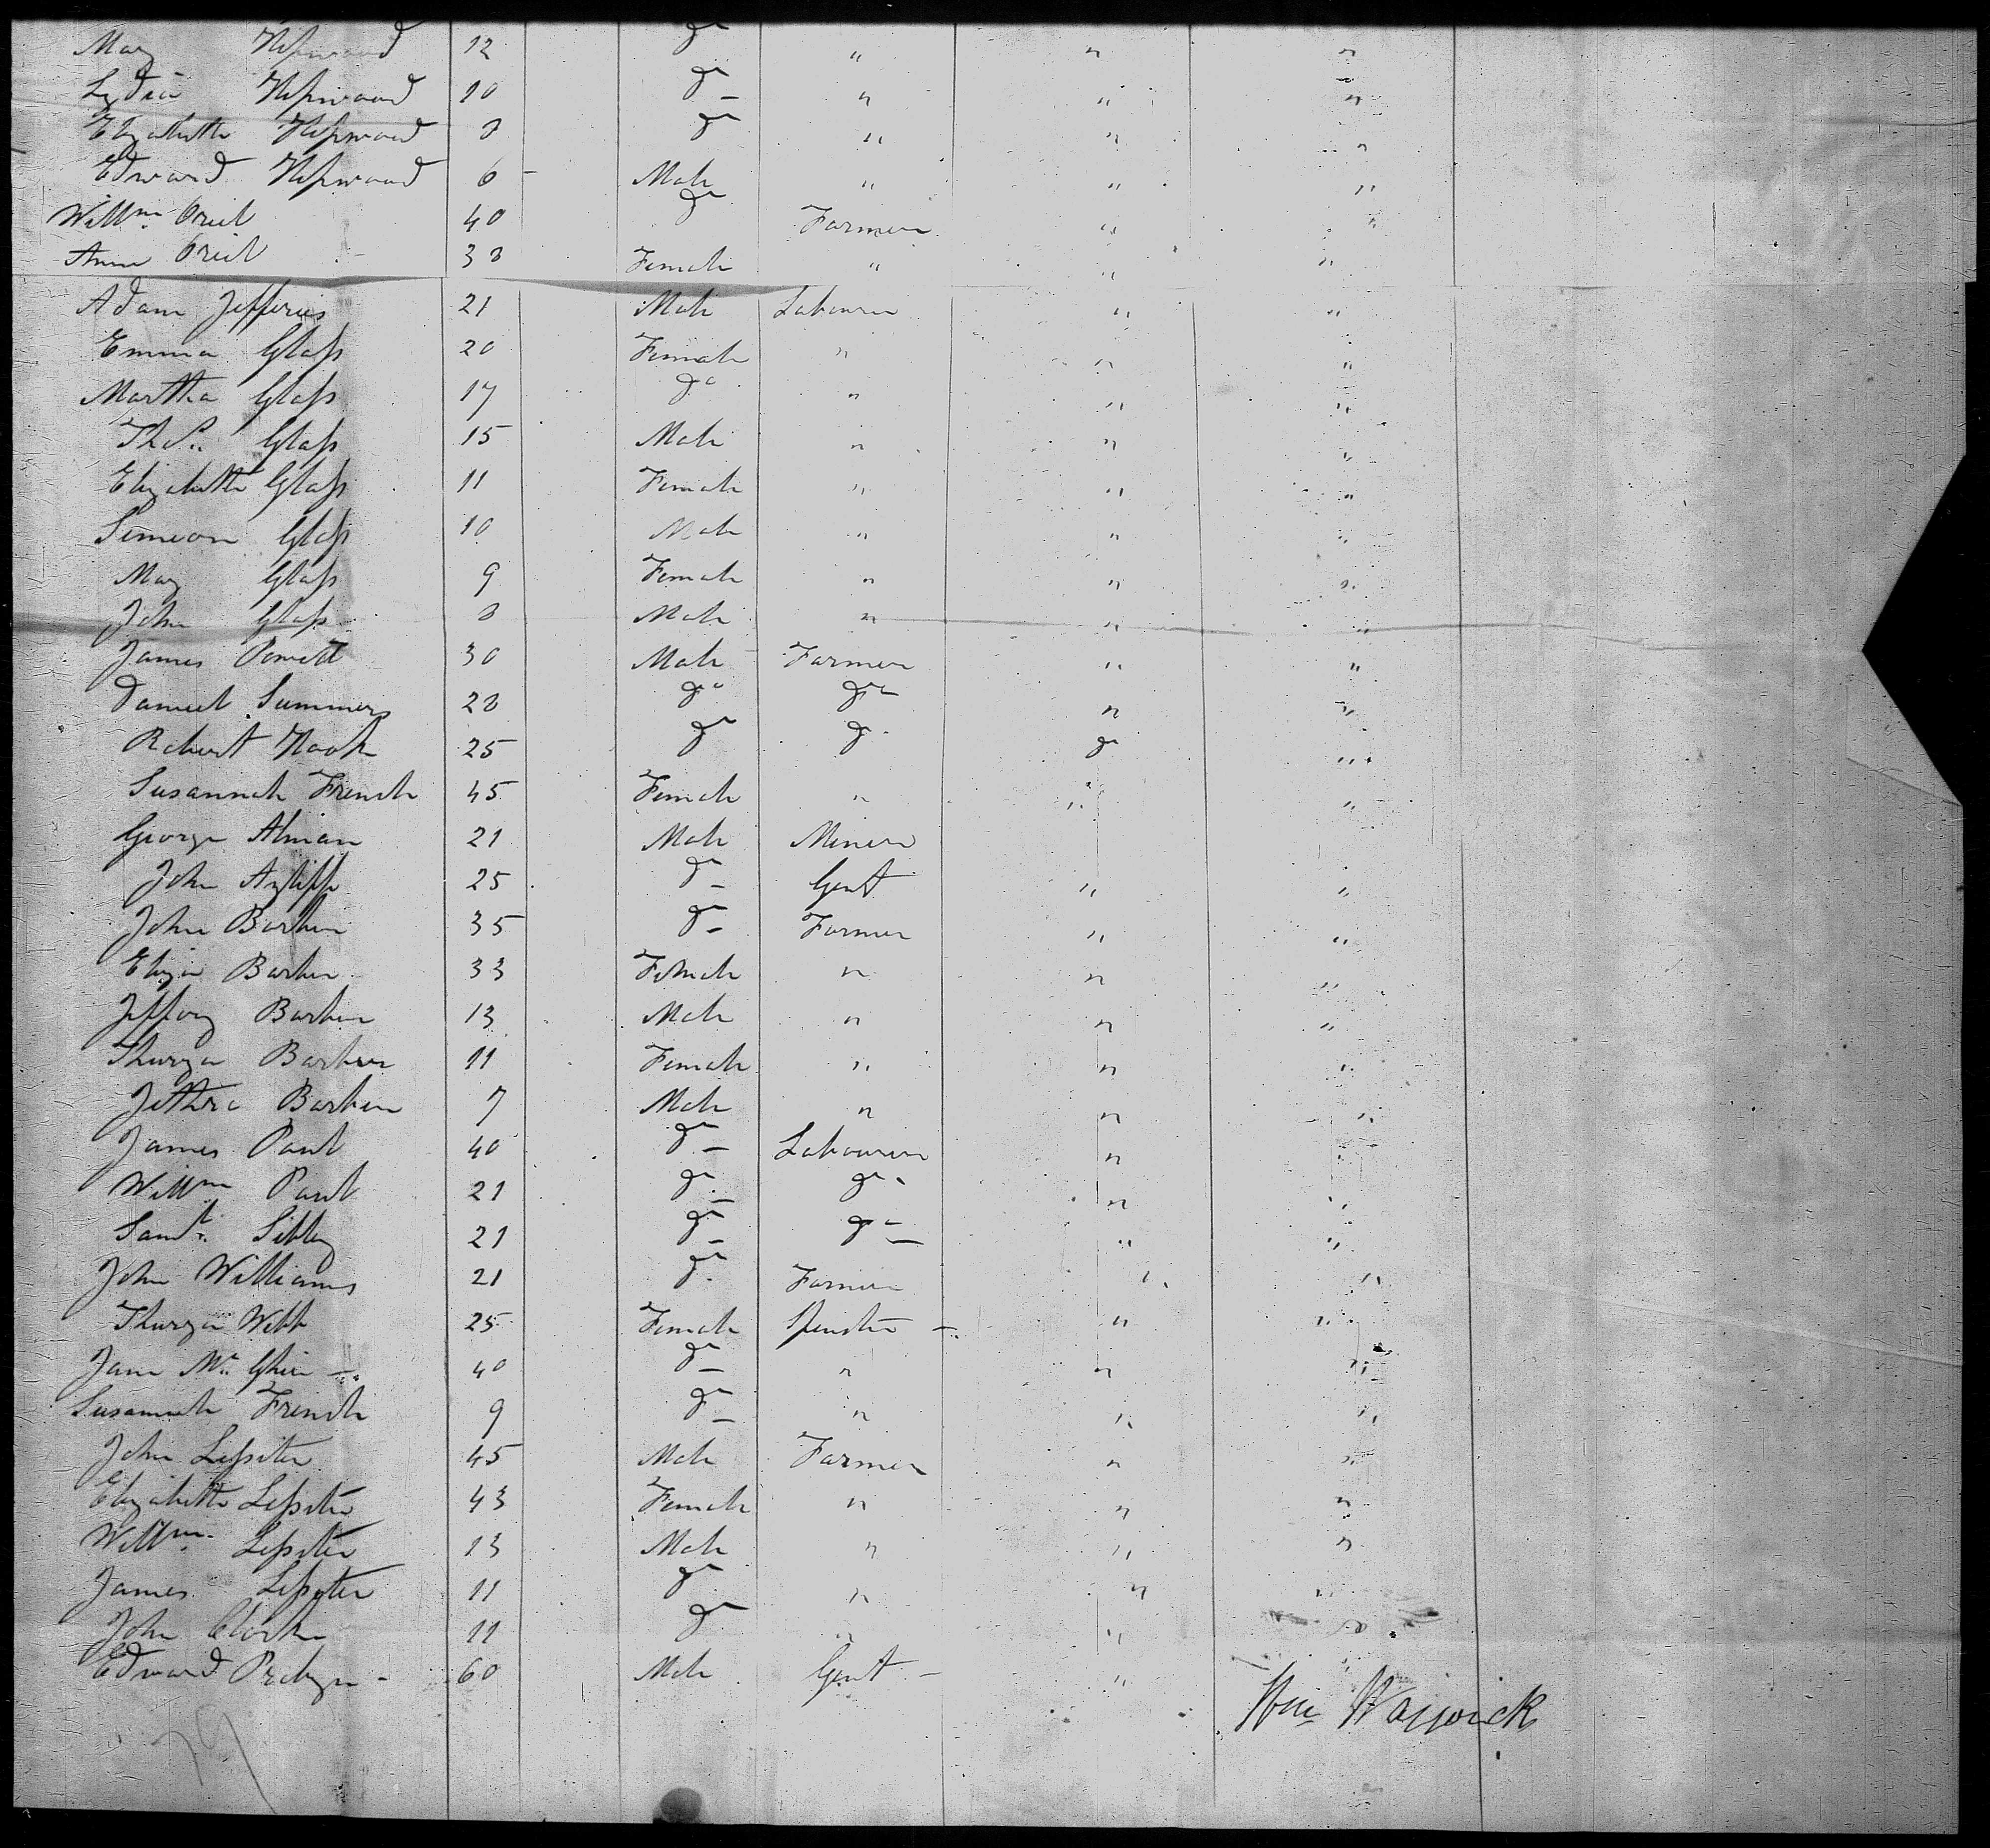 Mary Hopwood 12 do " " "
Lydia Hopwood 10 do " " "
Elizabeth Hopwood 8 do " " "
Edward Hopwood 6 Male " " "
Willm 40 do Farmer " "
Anne 38 Female " " "
Adam Jefferies 21 Male Labourer " "
Emma Glass 20 Female " " "
Martha Glass 17 do " " "
Thos. Glass 15 Male " " "
Elizabeth Glass 11 Female " " "
Simeon Glass 10 Male " " "
Mary Glass 9 Female " " "
John Glass 8 Male " " "
James Powell 30 Male Farmer " "
Daniel Summers 28 do do " "
Robert Nook 25 do do do "
Susannah French 45 Female " " "
George Alman 21 Male Miner
John Ayliffe 25 do Gent " "
John Barber 35 do Farmer " "
Eliza Barber 33 Female " " "
Jeffory Barber 13 Male " " "
Thurza Barber 11 Female " " "
Jethro Barber 7 Male " " "
James Paul 40 do Labourer " "
Willm Paul 21 do do " "
Saml. Sibley 21 do do " "
John Williams 21 do Farmer " "
Thurza Webb 25 Female Spinster " "
Jane Mc 40 do " " "
Susannah French 9 do " " "
John Lessiter 45 Male Farmer " "
Elizabeth Lessiter 43 Female " " "
Willm. Lessiter 13 Male " " "
James Lessiter 11 do " " "
John Clark 11 do " " "
Edward Probyn 60 Male Gent "
Wm Warwick
79